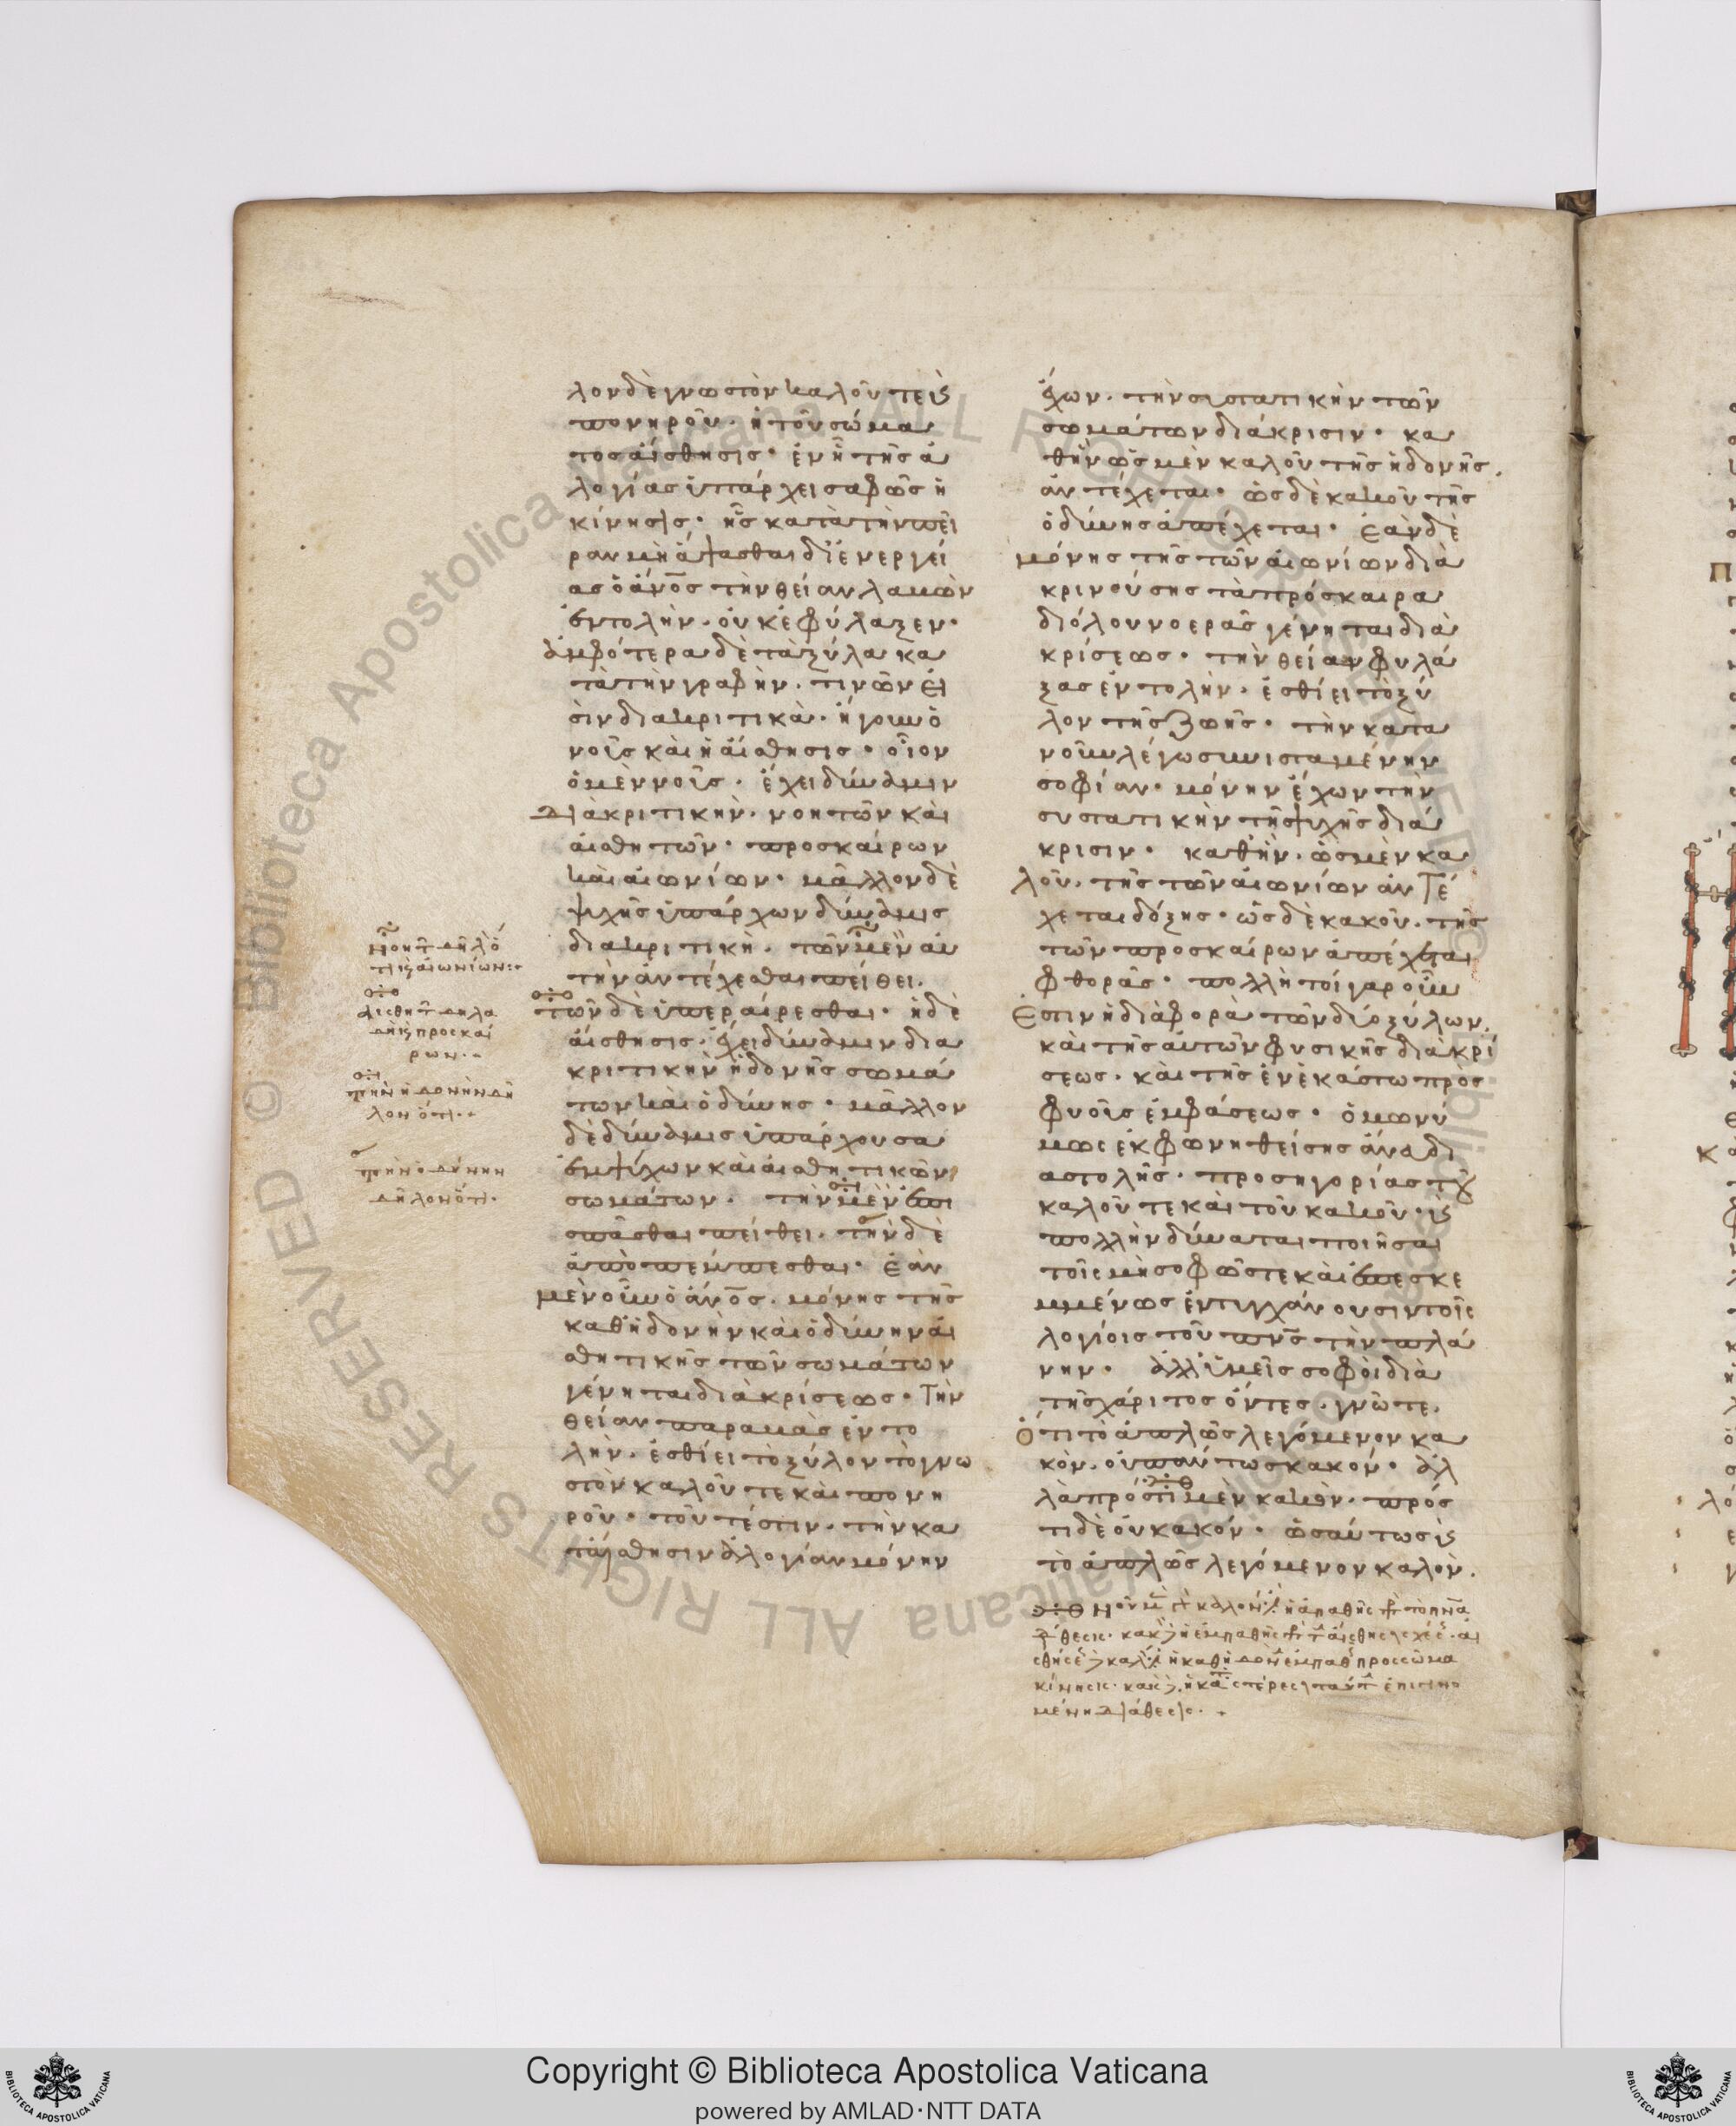 λον δὲ γνωστὸν καλοῦ τε κ(αὶ)
πονηροῦ. ἡ τοῦ σώμα
τος αἴσθησις· ἐν ᾗ τῆς ἀ
λογίας ὑπάρχει σαφῶς ἡ
κίνησις· ἧς κατὰ τὴν πεῖ
ραν μὴ ἅψασθαι δι' ἐνεργεί
ας ὁ ἄνο̅ς τὴν θείαν λαβὼν
ἐντολὴν. οὐκ ἐφύλαξεν·
ἀμφότερα δὲ τὰ ξύλα κα
τὰ τὴν γραφὴν. τινῶν εἰ
σὶν διακριτικὰ. ἤγουν ὁ
νοῦς καὶ ἡ αἴσθησις· οἷον
ὁ μὲν νοῦς. ἔχει δύναμιν
διακριτικὴν. νοητῶν καὶ
αἰσθητῶν· προσκαίρων
καὶ αἰωνίων· μᾶλλον δὲ
ψυχῆς ὑπάρχων δύναμις
διακριτικὴ. τῶν μὲν αὐ
τὴν ἀντέχεσθαι πείθει.
τῶν δὲ ὑπεραίρεσθαι· ἡ δὲ
αἴσθησις. ἔχει δύναμιν δια
κριτικὴν ἡδονῆς σωμά
των καὶ ὀδύνης· μᾶλλον
δὲ δύναμις ὑπάρχουσα
ἐμψύχων καὶ αἰσθητικῶν
σωμάτων. τὴν μὲν ἐπι
σπᾶσθαι πείθει. τὴν δὲ
ἀποπέμπεσθαι· Ἐὰν
μὲν οὖν ὁ ἄνο̅ς. μόνης τῆς
καθ' ἡδονὴν καὶ ὀδύνην αἰ
σθητικῆς τῶν σωμάτων
γένηται διακρίσεως· Τὴν
θείαν παραβὰς ἐντο
λὴν. ἐσθίει τὸ ξύλον τὸ γνω
στὸν καλοῦ τε καὶ πονη
ροῦ· τοῦτέστιν. τὴν κα
τ' αἴσθησιν ἀλογίαν μόνην
ἔχων. τὴν συστατικὴν τῶν
σωμάτων διάκρισιν· κα
θ' ἣν ὡς μὲν καλοῦ τῆς ἡδονῆς
ἀντέχεται· ὡς δὲ κακοῦ τῆς
ὀδύνης ἀπέχεται· Ἐὰν δὲ
μόνης τῆς τῶν αἰωνίων δια
κρινούσης τὰ πρόσκαιρα
διόλου νοερᾶς γένηται δια
κρίσεως· τὴν θείαν φυλά
ξας ἐντολὴν. ἐσθίει τὸ ξύ
λον τῆς ζωῆς· τὴν κατὰ
νοῦν λέγω συνισταμένην
σοφίαν· μόνην ἔχων τὴν
συστατικὴν τῆς ψυχῆς διά
κρισιν· καθ' ἣν. ὡς μὲν κα
λοῦ. τῆς τῶν αἰωνίων ἀντέ
χεται δόξης· ὡς δὲ κακοῦ. τῆς
τῶν προσκαίρων ἀπέχεται
φθορᾶς· πολλὴ τοίγαροῦν
ἐστιν ἡ διαφορὰ τῶν δύο ξύλων.
καὶ τῆς αὐτῶν φυσικῆς διακρί
σεως. καὶ τῆς ἑνὶ ἑκάστω προσ
φυοῦς ἐμφάσεως· ὁμωνύ
μως ἐκφωνηθείσης ἄνα δι
αστολῆς. προσηγορίας τοῦ
καλοῦ τε καὶ τοῦ κακοῦ· κ(αὶ)
πολλὴν δύναται ποιῆσαι
τοῖς μὴ σοφῶς τε καὶ ἐπεσκε
μμένως ἐντυγχάνουσιν τοῖς
λογίοις τοῦ πν̅ς τὴν πλά
νην· ἀλλ' ὑμεῖς σοφοὶ διὰ
τῆς χάριτος ὄντες. γνῶτε.
ὅτι τὸ ἁπλῶς λεγόμενον κα
κὸν. οὐ πάντως κακόν· ἀλ
λὰ πρός τι μὲν κακὸν. πρός
τι δὲ οὐ κακόν· ὡσαύτως κ(αὶ)
τὸ ἁπλῶς λεγόμενον καλὸν.
μένη διάθεσις·